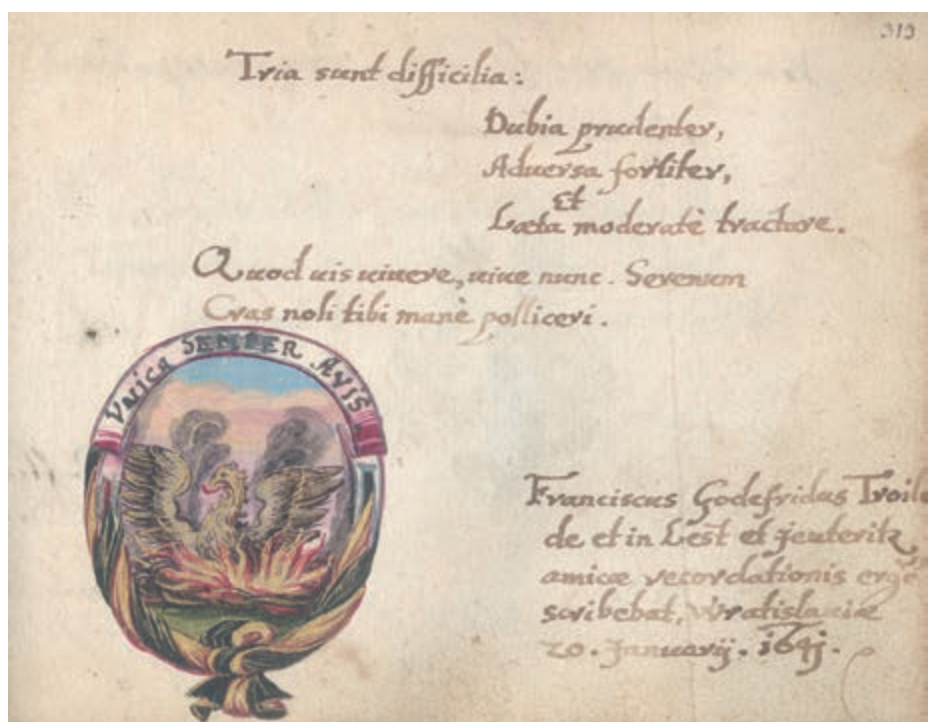 313
Tria sunt difficilia:
Dubia prudenter,
Aduersa fortiter,
Et
Læta moderatè tractare.
Quod uis uiuere, uiue nunc. Serenum
Cras noli tibi manè polliceri.
Vnica SEMPER AVIS
Franciscus Godefridus Troilo
de et in Lest et Jeuteritz
amicæ recordationis ergò
scribebat, Wratislauiæ
20. Januarij. 1641.